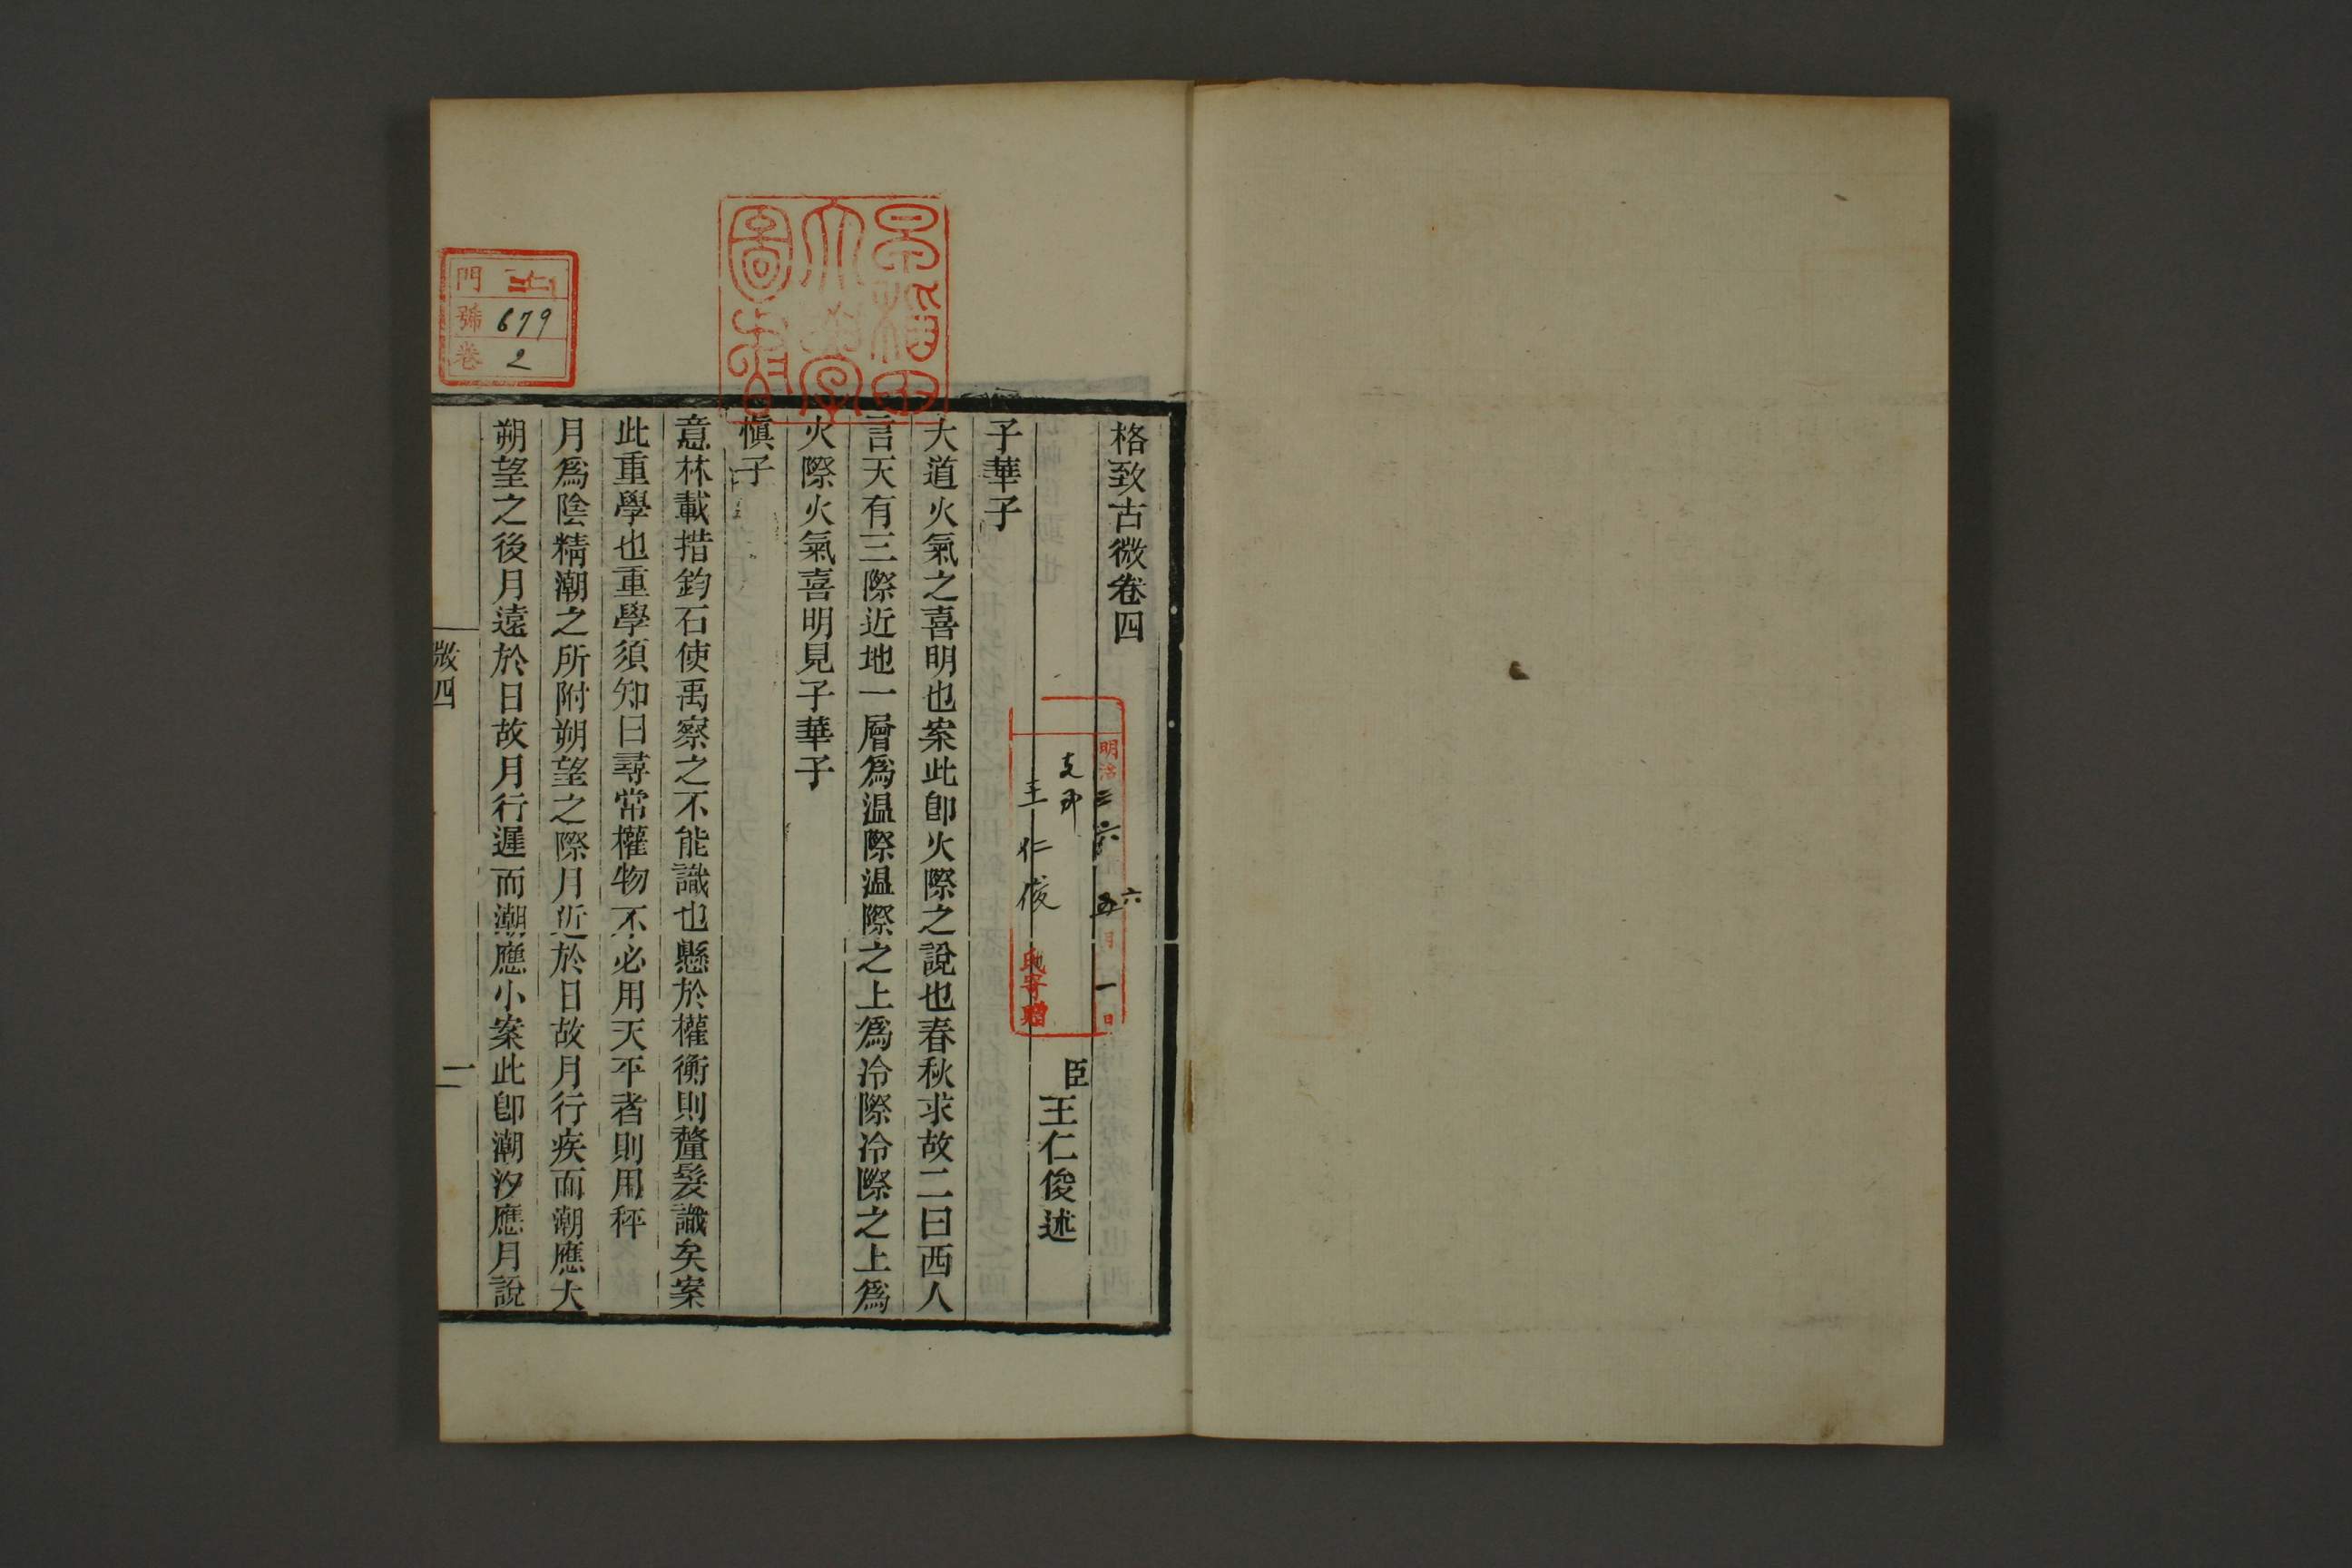 格致古微卷四
臣王仁俊述
子華子
大道火氣之喜明也案此卽火際之說也春秋求故二曰西人
言天有三際近地一層爲温際温際之上爲冷際冷際之上爲
火際火氣喜明見子華子
愼子
意林載措鈞石使禹察之不能識也懸於權衡則釐髮識矣案
此重學也重學須知曰尋常權物不必用天平者則用秤
月爲陰精潮之所附朔望之際月近於日故月行疾而潮應大
朔望之後月遠於日故月行遲而潮應小案此卽潮汐應月說
微四
一
早稻田
大學
圖書
門
號 679
卷 2
明治三六 六 五月一日
支那
王仁俊
氏寄贈